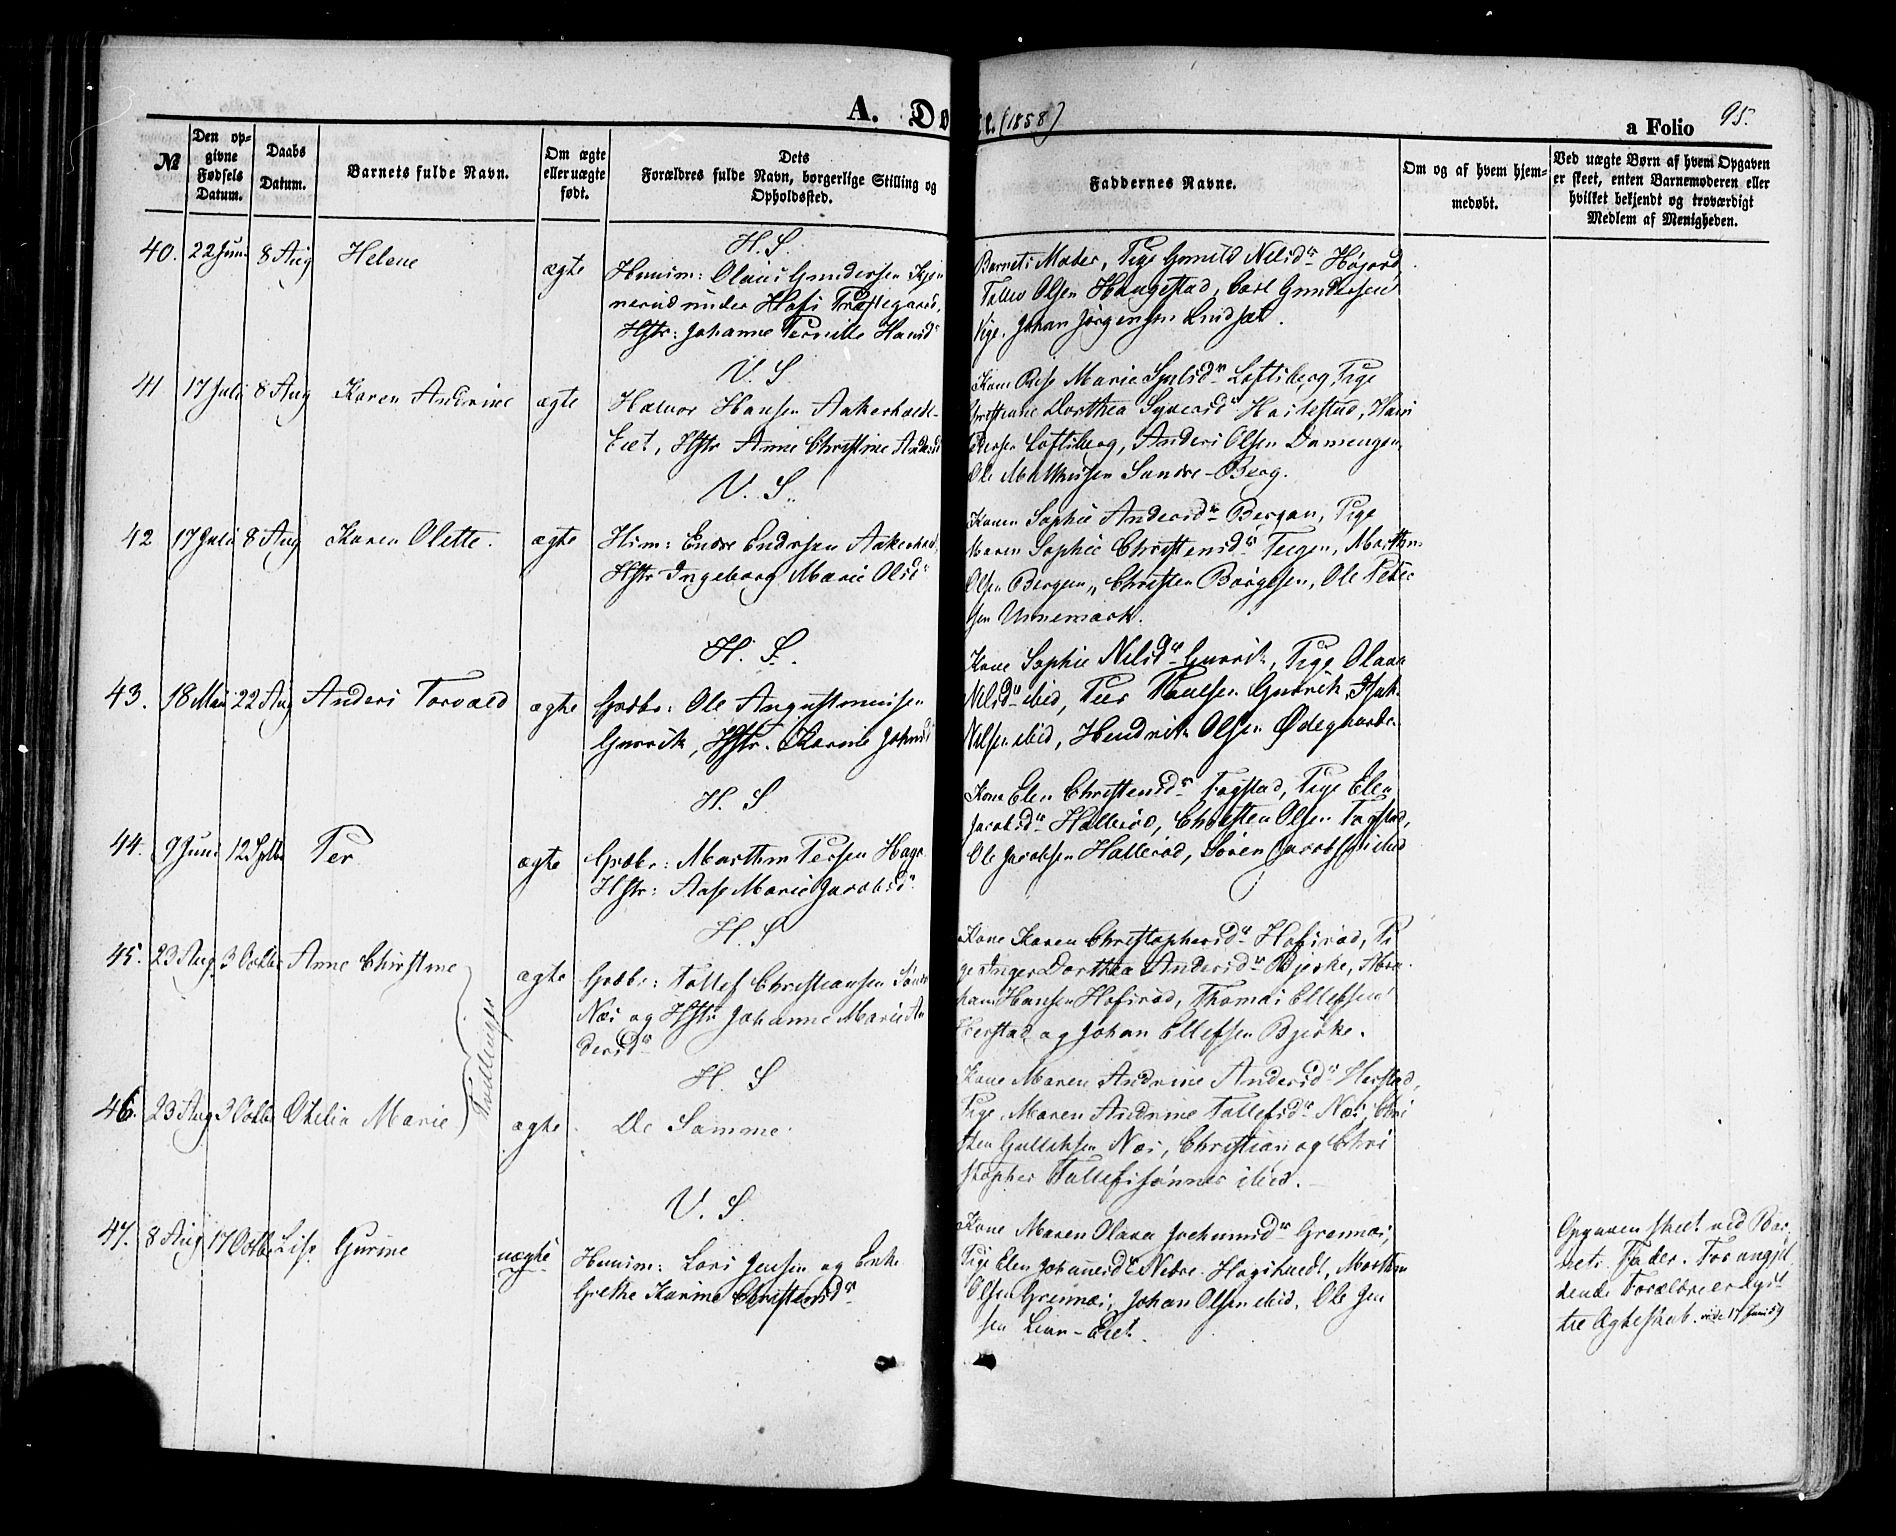 A. Døbte. (1858)
a Folio 95.
№
Den opgivne Fødsels Datum.
Daabs Datum.
Barnets fulde Navn.
Om ægte eller uægte født.
Dets Forældres fulde Navn, borgerlige Stilling og Opholdssted.
Faddernes Navne.
Om og af hvem hjemmedøbt.
Ved uægte Børn af hvem Opgaven er skeet, enten Barnemoderen eller hvilket bekjendt og troværdigt Medlem af Menigheden.
H. S.
40. 22 Juni 8 Aug Helene ægte
Huusm: Olaus Gundersen
nerud under Hofs Præstegaard,
Hstr: Johanne Pernille Hansdr
Barnets Moder, Pige Gunild Nilsdr Højord
Tollev Olsen Haugestad, Carl Gundersen
Vige. Johan Jørgensen
V. S.
41 17 Juli 8 Aug Karen Andrine ægte
Halvor Hansen Aakerholt-
Eiet, Hstr Anne Christine Andersd
Kone Marie Loftsberg, Pige
Christiane Dorthea Syversdr Hansestad, Hans
Loftsberg, Anders Olsen Damengen,
Ole Mathisen Søndre-Berg.
V. S.
42 17 Juli 8 Aug Karen Olette. ægte
Huusm: Endre Endresen Aakerholt,
Hstr Ingeborg Marie Olsdr
Konen Sophie Andersdr Bergan, Pige
Maren Sophie Christensdr Teigen, Morthen
Olsen Bergan, Christen Borgesen, Ole Peter
sen Unnemark.
H. S.
43. 18 Mai 22 Aug Anders Torvald ægte
Grdbr: Ole Augustinusen
Gurrik, Hstr. Karine Johnsd
Kone Sophie Nilsdr Gurrik, Pige Olava
Nilsdr ibid, Peer Paulsen Gurrik, Isak
Nilsen ibid, Hendrik Olsen Ødegaarden
H. S
44. 9 Juni 12 Septbr Per ægte
Grdbr: Morthen Persen Hage
Hstr: Aase Marie Jacobsdr
Kone Elen Christensdr Fogstad, Pige Elen
Jacobsdr Hallerød, Christen Olsen Fogstad,
Ole Jacobsen Hallerød, Søren Jacobsen ibid
H. S
45. 23 Aug 3 Octbr Anne Christine ægte
Grdbr: Tollef Christiansen Søndre
Næs og Hstr Johanne Marie An
dersdr
Kone Karen Christophersdr Hofsrød, Pi
ge Inger Dorthea Andersdr Bjerke, Abra
ham Hansen Hofsrød, Thomas Ellefsen
Herstad og Johan Ellefsen Bjerke.
Tvillinger
H. S
46. 23 Aug 3 Octbr Othilia Marie ægte
De Samme.
Kone Maren Andrine Andersdr Herstad,
Pige. Maren Andrine Tollefsdr Næs, Chri
sten Gulliksen Næs, Christian og Chri
stopher Tollefssønner ibid.
V. S.
47. 8 Aug 17 Octbr Lise Gurine uægte
Huusm: Lars Jensen og Enke
Grethe Karine Christensdr
Kone Maren Olava Jochumsdr Grennæs,
Pige Elen Johannesdr Nedre Hagstvedt, Morthen
Olsen Grennæs, Johan Olsen ibid, Ole Jen
sen Lian-Eiet.
Opgaven skeet ved Bar-
nets Fader. Forangjæl
dende Forældre er lyst
til Ægteskab. vide 17 Juni 59